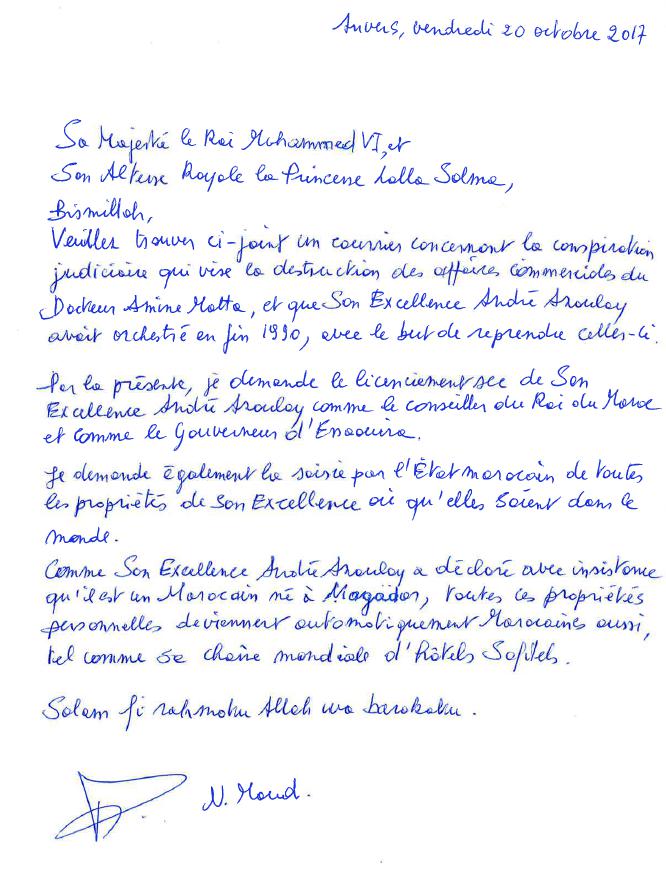 Anvers, vendredi 20 octobre 2017
Sa Majesté le Roi Mohammed VI, et
Son Altesse Royale la Princesse Lalla Salma,
Bismillah,
Veuillez trouver ci-joint un courrier concernant la conspiration
judiciaire qui vise la destruction des affaires commerciales du
Docteur Amine Matta, et que Son Excellence André Azoulay
avait orchestré en fin 1990, avec le but de reprendre celles-ci.
Par la présente, je demande le licenciement sec de Son
Excellence André Azoulay comme le conseiller du Roi du Maroc
et comme le Gouverneur d'Essaouira.
Je demande également la saisie par l'État marocain de toutes
les propriétés de Son Excellence où qu'elles soient dans le
monde.
Comme Son Excellence André Azoulay a déclaré avec insistance
qu'il est un Marocain né à Mogador, toutes ces propriétés
personnelles deviennent automatiquement Marocaines aussi,
tel comme sa chaîne mondiale d'hôtels Sofitels.
Salam fi rahmoku Allah wa barokaku.